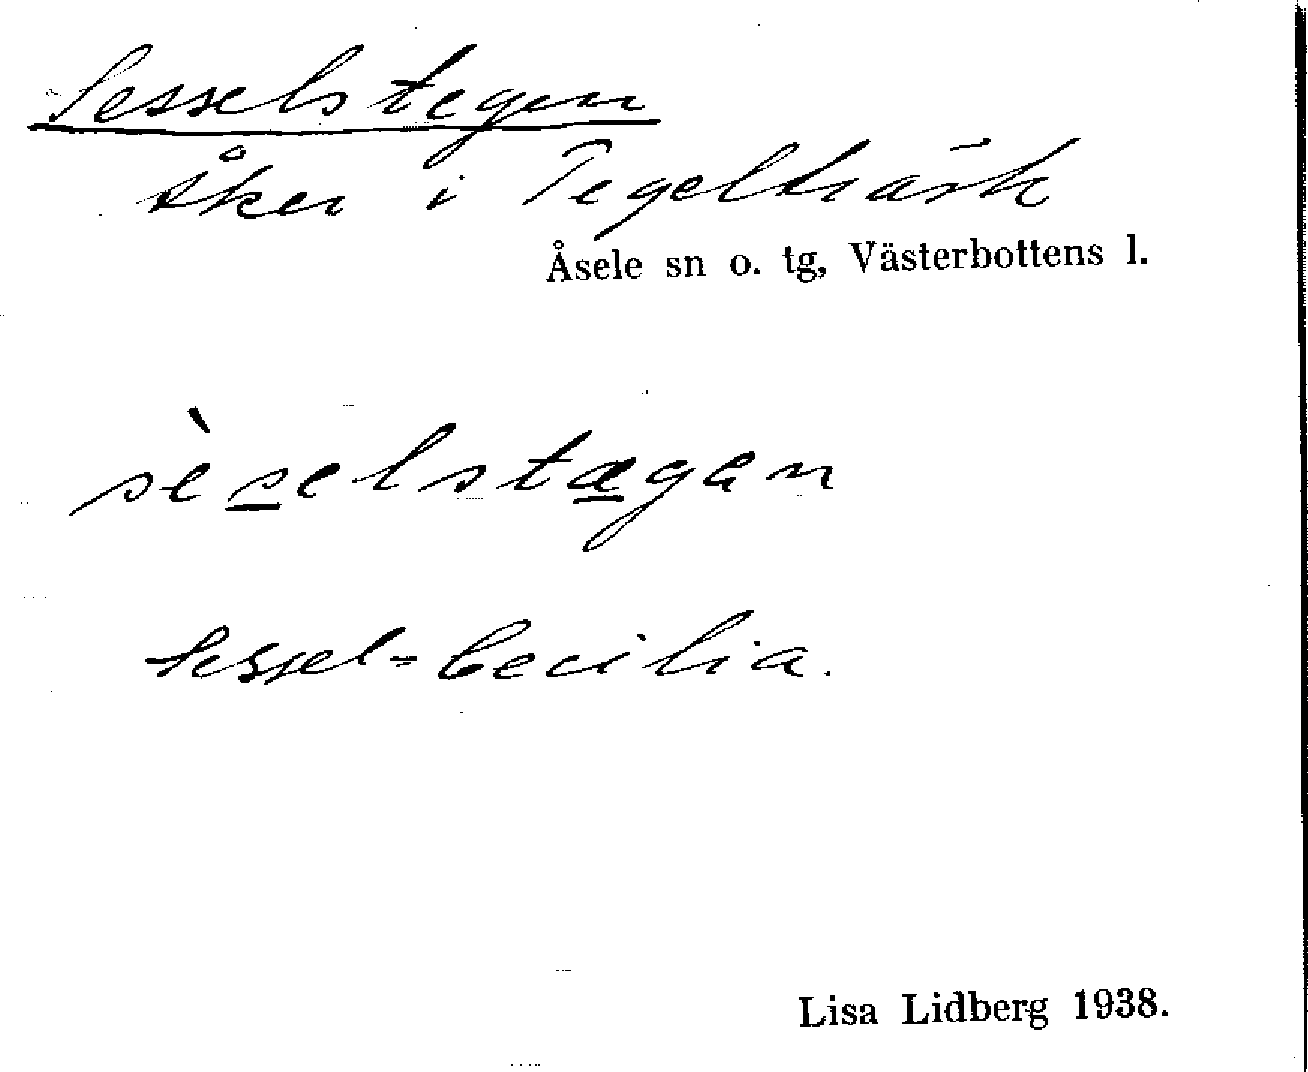 Sesselstegen
åker i Tegelträsk
Åsele sn o. tg, Västerbottens l.
sès̲elstæ̲gen
Sessel = Cecilia.
Lisa Lidberg 1938.